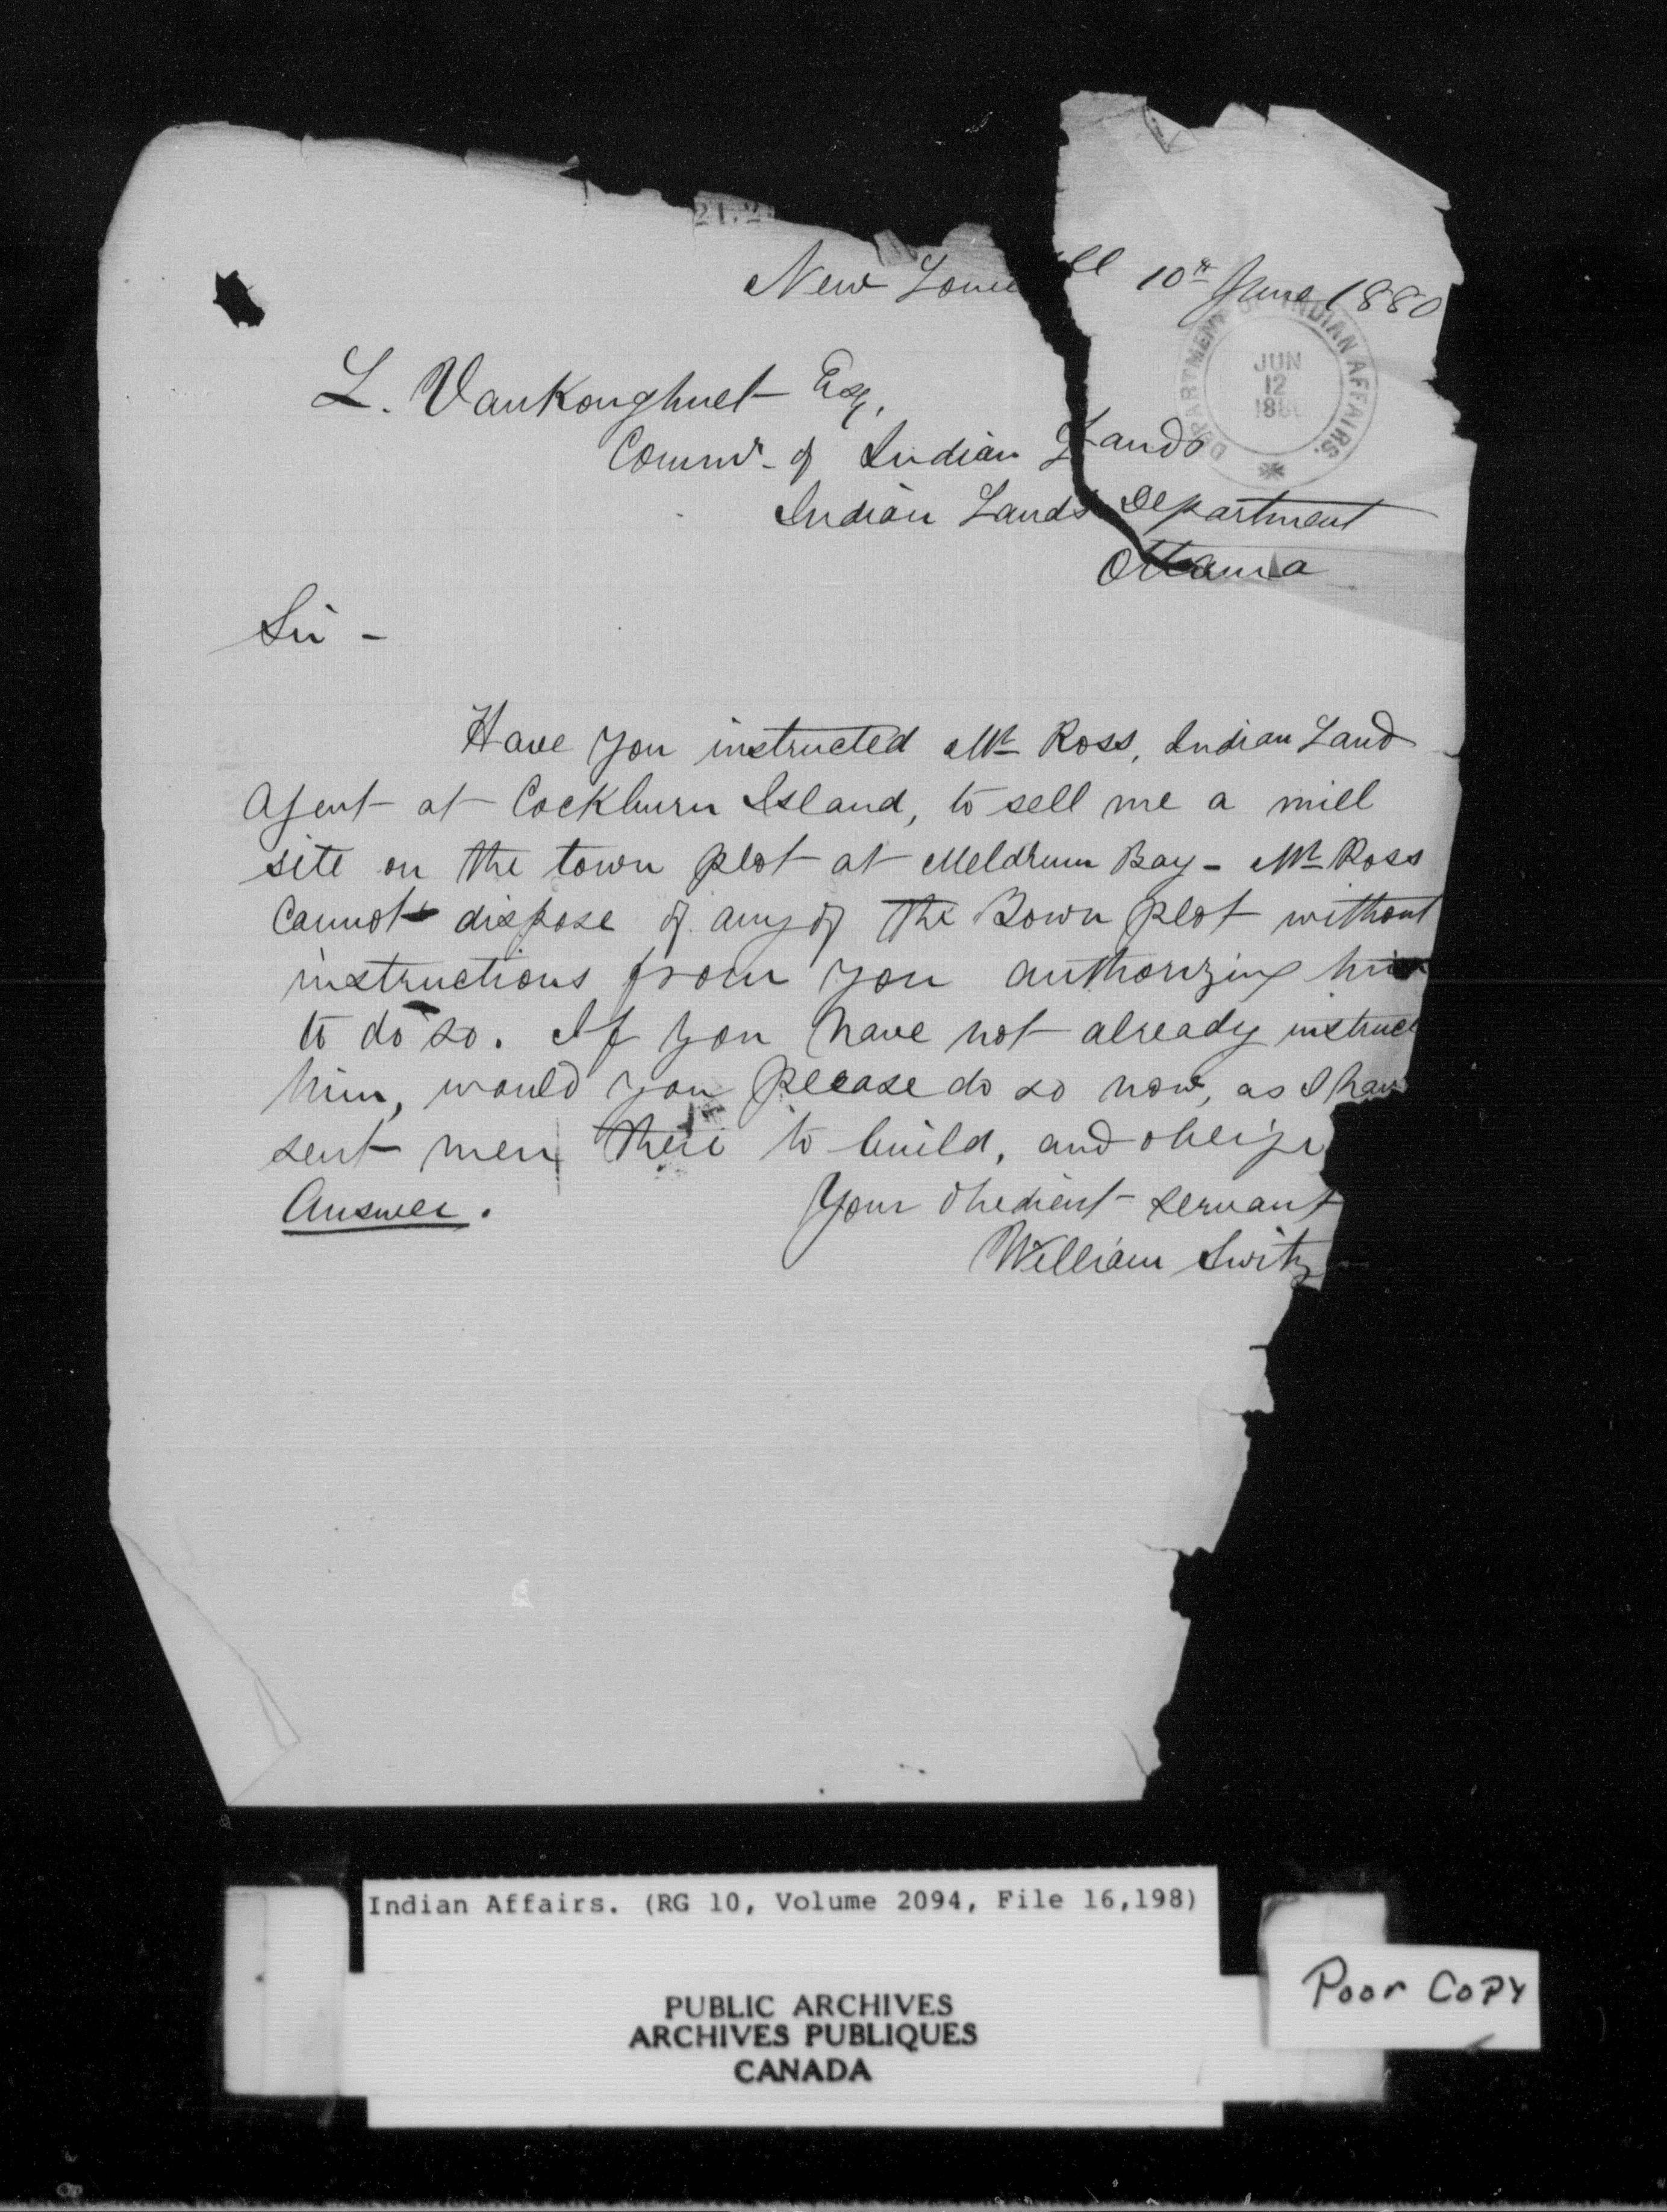 21.2
New Lowell 10th June 1880
DEPARTMENT OF INDIAN AFFAIRS.
JUN
12
188
L. VanKoughnet Esq,
Commr. of Indian Lands
Indian Lands Department
Ottawa
Sir -
Have you instructed Mr Ross, Indian Land
Agent at Cockburn Island, to sell me a mill
site on the town plot at Meldrum Bay - Mr Ross
Cannot dispose of any of the Town plot without
instructions from you authorizing him
to do so. If you have not already instruct
him, would you please do so now, as I hav
sent men there to build, and oblige
Answer. Your obedient servant
William Switz
Indian Affairs. (RG 10, Volume 2094, File 16,198)
PUBLIC ARCHIVES
ARCHIVES PUBLIQUES
CANADA
Poor Copy